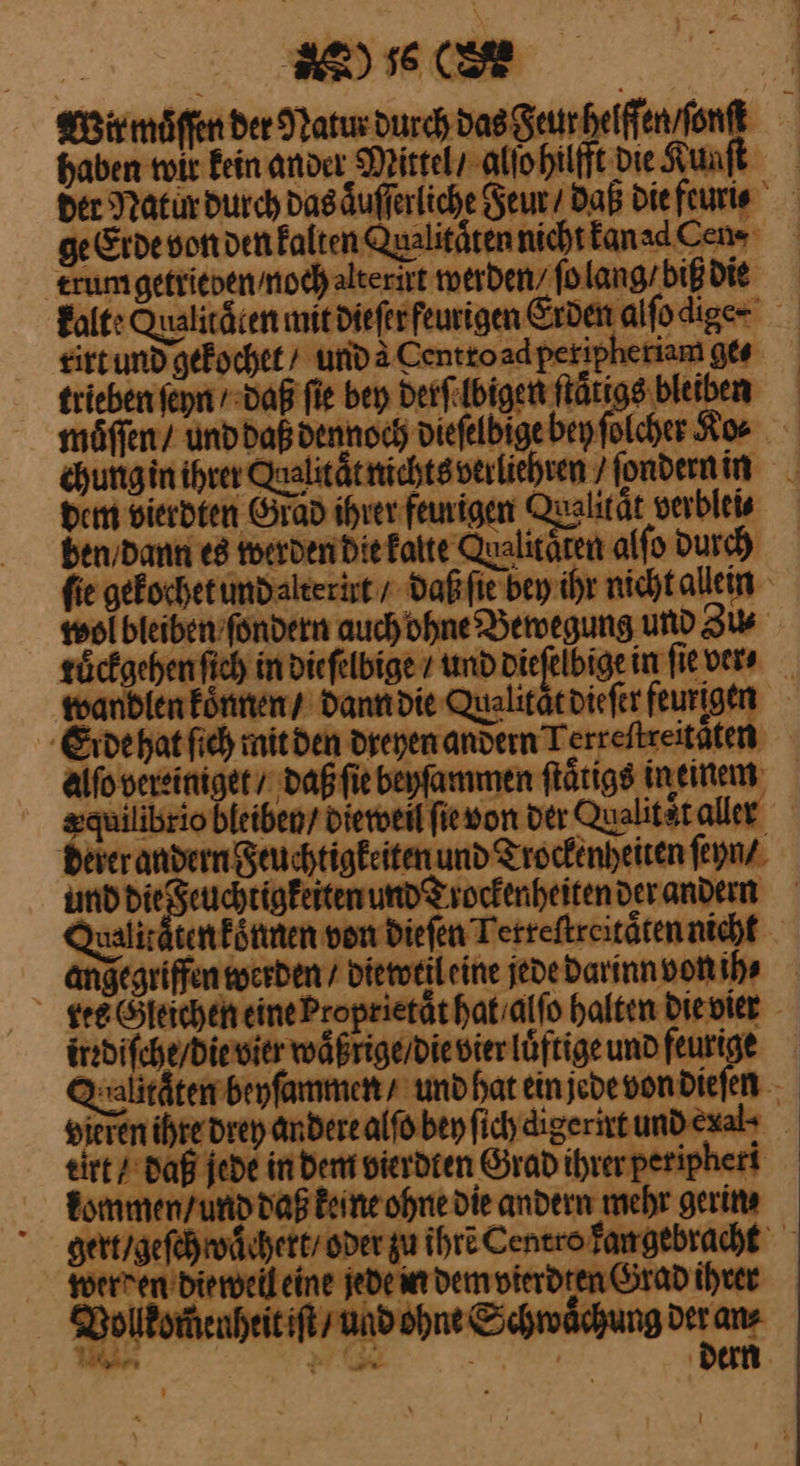 ) 16 (
Wir müſſen der Natur durch das Feur helffen/ ſonſt
haben wir kein ander Mittel/ alſo hilfft die Kunſt
der Natur durch das aͤuſſerliche Feur/ daß die feuri⸗
ge Erde von den kalten Qualitaͤten nicht kan ad Cen-
trum getrieben/ noch alterirt werden/ ſo lang/ biß die
kalte Qualitaͤten mit dieſer feurigen Erden alſo dige-
rirt und gekochet/ und à Centro ad peripheriam ge⸗
trieben ſeyn/ daß ſie bey derſelbigen ſtaͤtigs bleiben
muͤſſen/ und daß dennoch dieſelbige bey ſolcher Ko⸗
chung in ihrer Qualitaͤt nichts verliehren/ ſondern in
dem vierdten Grad ihrer feurigen Qualitaͤt verblei⸗
ben/ dann es werden die kalte Qualitaͤten alſo durch
ſie gekochet und alterirt/ daß ſie bey ihr nicht allein
wol bleiben/ ſondern auch ohne Bewegung und Zu⸗
ruͤckgehen ſich in dieſelbige/ und dieſelbige in ſie ver⸗
wandlen koͤnnen/ dann die Qualitaͤt dieſer feurigen
Erde hat ſich mit den dreyen andern Terreſtreitaͤten
alſo vereiniget/ daß ſie beyſammen ſtaͤtigs in einem
æquilibrio bleiben/ dieweil ſie von der Qualitaͤt aller
derer andern Feuchtigkeiten und Trockenheiten ſeyn/
und die Feuchtigkeiten und Trockenheiten der andern
Qualitaͤten koͤnnen von dieſen Terreſtreitaͤten nicht
angegriffen werden/ dieweil eine jede darinn von ih⸗
res Gleichen eine Proprietaͤt hat/ alſo halten die vier
irrdiſche/ die vier waͤßrige/ die vier luͤftige und feurige
Qualitaͤten beyſammen/ und hat ein jede von dieſen
vieren ihre drey andere alſo bey ſich digerirt und exal-
tirt/ daß jede in dem vierdten Grad ihrer peripheri
kommen/ und daß keine ohne die andern mehr gerin⸗
gert/ geſchwaͤchert/ oder zu ihrẽ Centro kan gebracht
werden dieweil eine jede in dem vierdten Grad ihrer
Vollkom̃enheit iſt/ und ohne Schwaͤchung der an⸗
dern